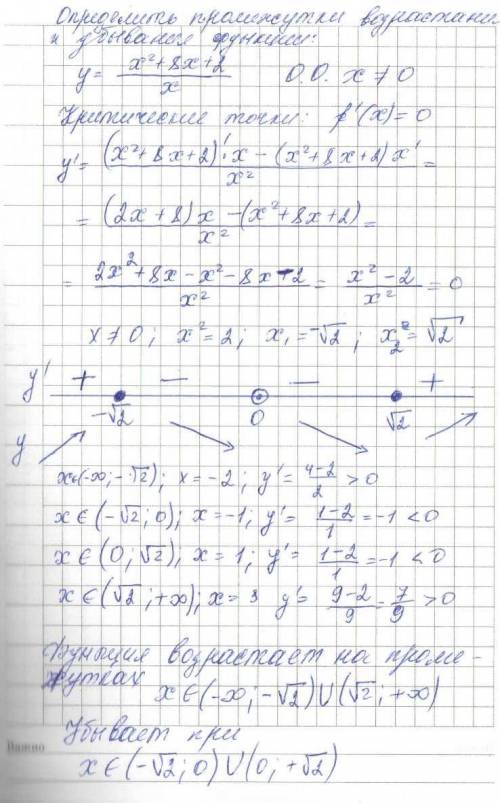 Определить промижутки возрастани
и убывания функции:
y = (x²+8x+2)/x   О.О. x ≠ 0
Критические точки: f'(x) = 0
y' = ((x²+8x+2)'·x − (x²+8x+2)x')/x² =
= ((2x+8)x − (x²+8x+2))/x² =
= (2x²+8x−x²−8x−2)/x² = (x²−2)/x² = 0
x ≠ 0; x² = 2; x₁ = −√2; x₂ = √2
y' + − − +
−√2 0 √2
y
x∈(−∞; −√2); x = −2; y' = (4−2)/2 > 0
x∈(−√2; 0); x = −1; y' = (1−2)/1 = −1 < 0
x∈(0; √2); x = 1; y' = (1−2)/1 = −1 < 0
x∈(√2; +∞); x = 3 y' = (9−2)/9 = 7/9 > 0
Функция возрастает на проме-
жутках x∈(−∞; −√2)∪(√2; +∞)
Убывает при
Важно
x∈(−√2; 0)∪(0; +√2)